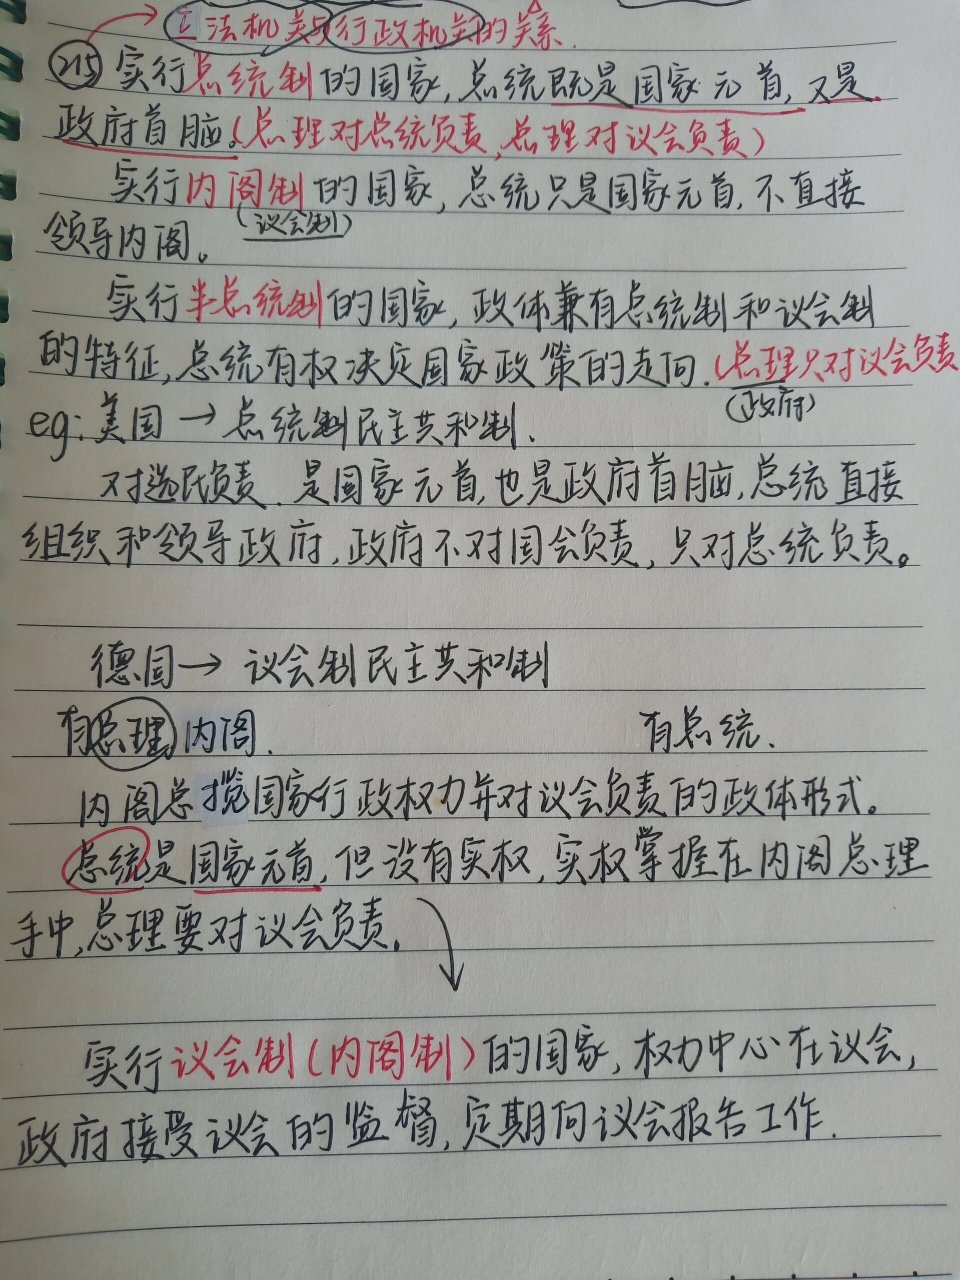 立法机关与行政机关的关系.
215 实行总统制的国家,总统既是国家元首,又是
政府首脑。(总理对总统负责,总理对议会负责)
实行内阁制的国家,总统只是国家元首,不直接
(议会制)
领导内阁。
实行半总统制的国家,政体兼有总统制和议会制
的特征,总统有权决定国家政策的走向.(总理只对议会负责
(政府)
eg:美国→总统制民主共和制.
对选民负责.是国家元首,也是政府首脑,总统直接
组织和领导政府,政府不对国会负责,只对总统负责。
德国→议会制民主共和制
有总理,内阁. 有总统.
内阁总揽国家行政权力并对议会负责的政体形式。
总统是国家元首,但没有实权,实权掌握在内阁总理
手中,总理要对议会负责.
实行议会制(内阁制)的国家,权力中心在议会,
政府接受议会的监督,定期向议会报告工作.